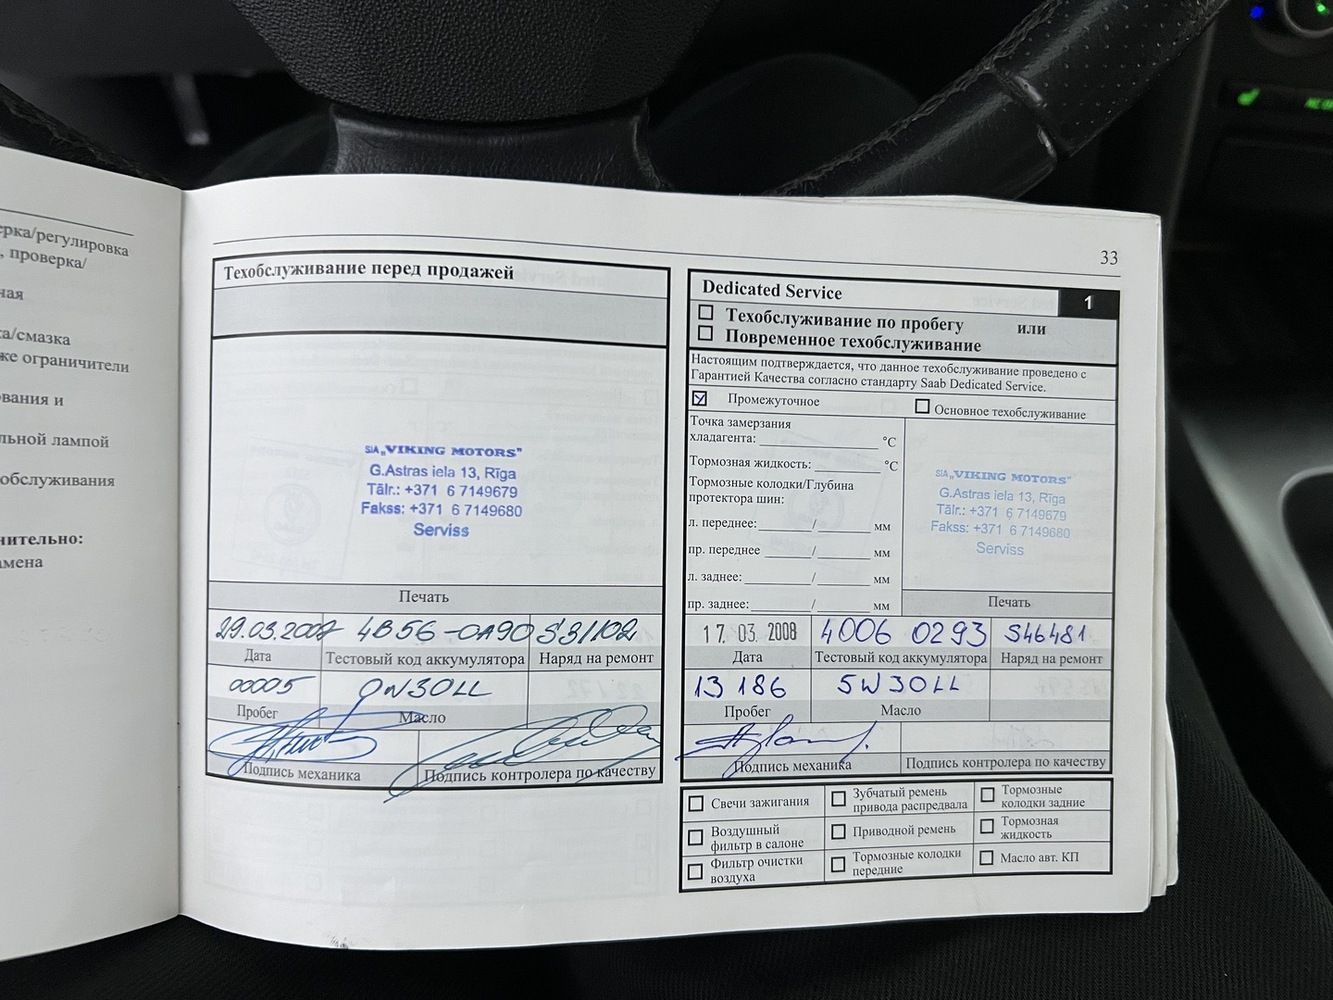 ерка/регулировка
, проверка/
ная
ка/смазка
же ограничители
ования и
льной лампой
обслуживания
нительно:
амена
33
Техобслуживание перед продажей
SIA „VIKING MOTORS"
G.Astras iela 13, Rīga
Tālr.: +371 6 7149679
Fakss: +371 6 7149680
Serviss
Печать
29.03.2007 4B56-0A90 S31102
Дата Тестовый код аккумулятора Наряд на ремонт
00005 0W30LL
Пробег Масло
Подпись механика Подпись контролера по качеству
Dedicated Service 1
Техобслуживание по пробегу или
Повременное техобслуживание
Настоящим подтверждается, что данное техобслуживание проведено с
Гарантией Качества согласно стандарту Saab Dedicated Service.
Промежуточное Основное техобслуживание
Точка замерзания
хладагента: °C
Тормозная жидкость: °C
Тормозные колодки/Глубина
протектора шин:
л. переднее: / мм
пр. переднее / мм
л. заднее: / мм
пр. заднее: / мм
SIA „VIKING MOTORS"
G.Astras iela 13, Rīga
Tālr.: +371 6 7149679
Fakss: +371 6 7149680
Serviss
Печать
17. 03. 2008 4006 0293 S46481
Дата Тестовый код аккумулятора Наряд на ремонт
13 186 5W30LL
Пробег Масло
Подпись механика Подпись контролера по качеству
Свечи зажигания
Зубчатый ремень
привода распредвала
Тормозные
колодки задние
Воздушный
фильтр в салоне
Приводной ремень
Тормозная
жидкость
Фильтр очистки
воздуха
Тормозные колодки
передние
Масло авт. КП